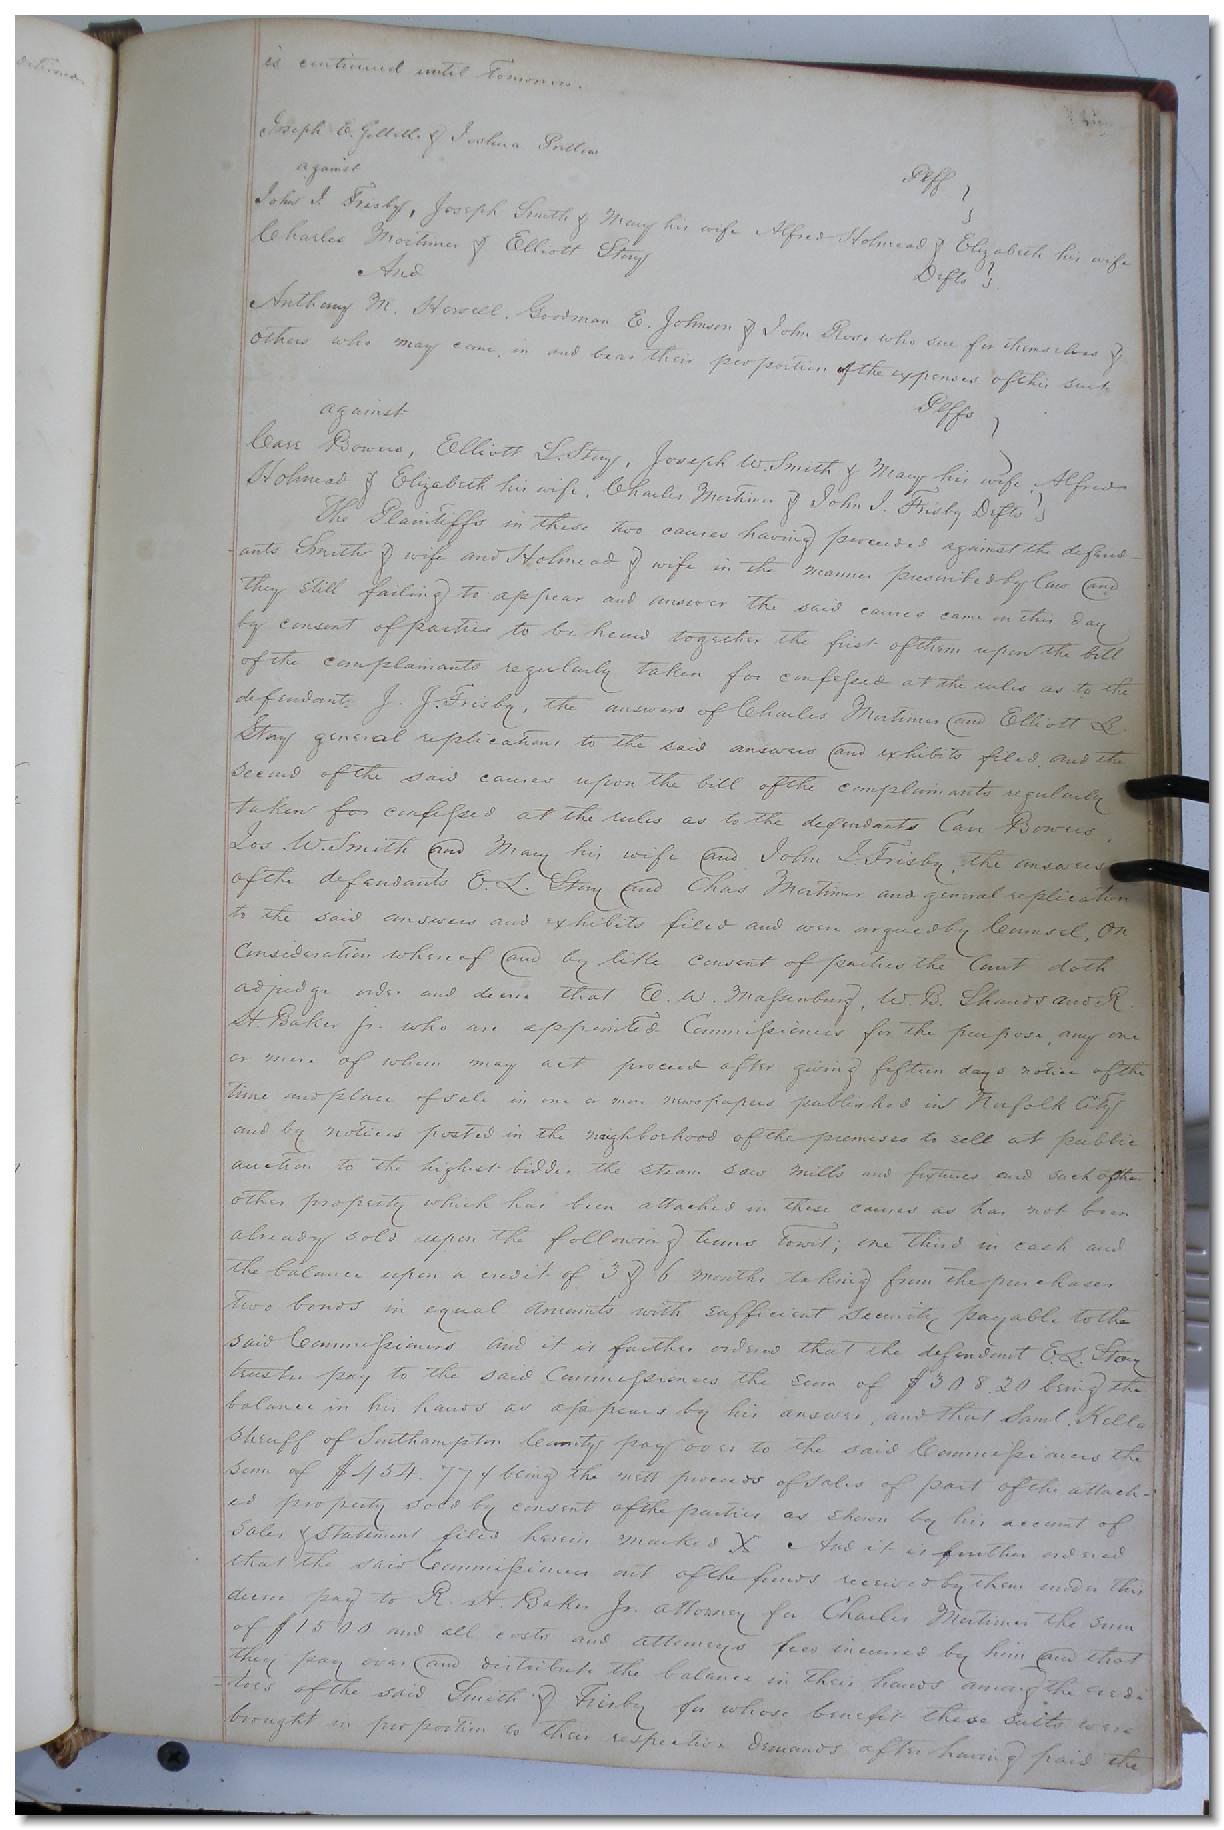 is continued until Tomorrow.
Joseph E. Gillette & Joshua Pretlow
Plff }
against
John I. Frisby, Joseph Smith & Mary his wife Alfred Holmead & Elizabeth his wife
Charles Mortimer & Elliott Story
Defts }
And
Anthony M. Howell, Goodman E. Johnson & John Rose who sue for themselves &
others who may come in and bear their proportion of the expenses of this suit
Plffs }
against
Carr Bowers, Elliott L. Story, Joseph W. Smith & Mary his wife, Alfred
Holmead & Elizabeth his wife, Charles Mortimer & John I. Frisby Defts }
The Plaintiffs in these two causes having proceeded against the defend-
ants Smith & wife and Holmead & wife in the manner prescribed by law and
they still failing to appear and answer the said causes came on this day
by consent of parties to be heard together the first of them upon the bill
of the complainants regularly taken for confessed at the rules as to the
defendant J. J. Frisby, the answers of Charles Mortimer and Elliott L.
Story general replications to the said answers and exhibits filed, and the
second of the said causes upon the bill of the complainants regularly
taken for confessed at the rules as to the defendants Carr Bowers,
Jos W. Smith and Mary his wife and John I. Frisby, the answers
of the defendants E. L. Story and Chas Mortimer and general replication
to the said answers and exhibits filed and were argued by Counsel, On
Consideration whereof and by like consent of parties the Court doth
adjudge order and decree that E. W. Massenburg, W. B. Shands and R.
H. Baker Jr. who are appointed Commissioners for the purpose, any one
or more of whom may act proceed after giving fifteen days notice of the
time and place of sale in one or more newspapers published in Norfolk City
and by notices posted in the neighborhood of the premises to sell at public
auction to the highest bidder the steam saw mills and fixtures and such of the
other property which has been attached in these causes as has not been
already sold upon the following terms towit; one third in cash and
the balance upon a credit of 3 & 6 months taking from the purchaser
two bonds in equal amounts with sufficient security payable to the
said Commissioners and it is further ordered that the defendant E. L. Story
trustee pay to the said Commissioners the sum of $308.20 being the
balance in his hands as appears by his answer, and that Saml. Kello
sheriff of Southampton County pay over to the said Commissioners the
sum of $454.77 being the nett proceeds of sales of part of the attach-
ed property sold by consent of the parties as shown by his account of
sales & statement filed herein marked X And it is further ordered
that the said Commissioners out of the funds received by them under this
decree pay to R. H. Baker Jr. attorney for Charles Mortimer the sum
of $1500 and all costs and attorneys fees incurred by him and that
they pay over and distribute the balance in their hands among the credi
-tors of the said Smith & Frisby for whose benefit these suits were
brought in proportion to their respective demands after having paid the